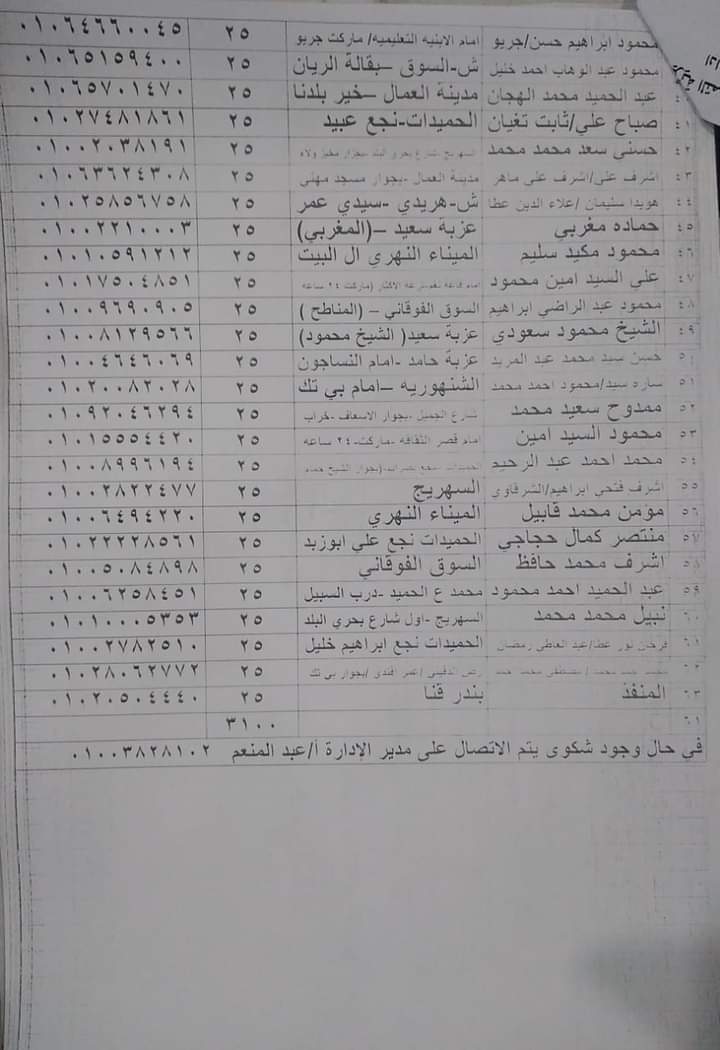 محمود ابراهيم حسن/جريو امام الابنيه التعليميه/ ماركت جريو ٢٥ ٠١٠٦٤٦٦٠٠٤٥
محمود عبد الوهاب احمد خليل ش-السوق –بقالة الريان ٢٥ ٠١٠٦٥١٥٩٤٠٠
عبد الحميد محمد الهجان مدينة العمال –خير بلدنا ٢٥ ٠١٠٦٥٧٠١٤٧٠
٤١ صباح علي/ثابت تغيان الحميدات-نجع عبيد ٢٥ ٠١٠٢٧٤٨١٨٦١
٤٢ حسنى سعد محمد محمد السهريج -شارع بحري البلد -بجوار ٢٥ ٠١٠٠٢٠٣٨١٩١
٤٣ اشرف على/اشرف على ماهر مدينة العمال -بجوار مسجد مهنى ٢٥ ٠١٠٦٣٦٢٤٣٠٨
٤٤ هويدا سليمان /علاء الدين عطا ش-هريدي -سيدي عمر ٢٥ ٠١٠٢٥٨٥٦٧٥٨
٤٥ حماده مغربي عزبة سعيد –(المغربي) ٢٥ ٠١٠٠٢٢١٠٠٠٣
٤٦ محمود مكيد سليم الميناء النهري ال البيت ٢٥ ٠١٠١٠٥٩١٢١٢
٤٧ على السيد امين محمود امام قاعه /ماركت ٢٤ ساعه ٢٥ ٠١٠١٧٥٠٤٨٥١
٤٨ محمود عبد الراضي ابراهيم السوق الفوقاني – (المناطح ) ٢٥ ٠١٠٠٩٦٩٠٩٠٥
٤٩ الشيخ محمود سعودي عزبة سعيد( الشيخ محمود) ٢٥ ٠١٠٠٨١٢٩٥٦٦
٥٠ حسن سيد محمد عبد المريد عزبة حامد -امام النساجون ٢٥ ٠١٠٠٤٦٤٦٠٦٩
٥١ ساره سيد/محمود احمد محمد الشنهوريه –امام بي تك ٢٥ ٠١٠٢٠٠٨٢٠٢٨
٥٢ ممدوح سعيد محمد شارع الجميل -بجوار الاسعاف -خراب ٢٥ ٠١٠٩٢٠٤٦٢٩٤
٥٣ محمود السيد امين امام قصر الثقافه -ماركت-٢٤ ساعه ٢٥ ٠١٠١٥٥٥٤٤٢٠
٥٤ محمد احمد عبد الرحيم الحميدات -نجع (بجوار الشيخ ٢٥ ٠١٠٠٨٩٩٦١٩٤
٥٥ اشرف فتحي ابراهيم/الشرقاوي السهريج ٢٥ ٠١٠٠٢٨٢٢٤٧٧
٥٦ مؤمن محمد قابيل الميناء النهري ٢٥ ٠١٠٠٦٤٩٤٢٢٠
٥٧ منتصر كمال حجاجي الحميدات نجع علي ابوزيد ٢٥ ٠١٠٢٢٢٢٨٥٦١
٥٨ اشرف محمد حافظ السوق الفوقاني ٢٥ ٠١٠٠٥٠٨٤٨٩٨
٥٩ عبد الحميد احمد محمود محمد ع الحميد -درب السبيل ٢٥ ٠١٠٠٦٢٥٨٤٥١
٦٠ نبيل محمد محمد السهريج -اول شارع بحري البلد ٢٥ ٠١٠١٠٠٠٥٣٥٣
٦١ فرحان نور عطا/عبد العاطى رمضان الحميدات نجع ابراهيم خليل ٢٥ ٠١٠٠٢٧٨٢٥١٠
٦٢ محمد / مصطفى محمد /عمر افندى /بجوار بي تك ٢٥ ٠١٠٢٨٠٦٢٧٧٢
٦٣ المنفذ بندر قنا ٢٥ ٠١٠٢٠٥٠٤٤٤٠
٦٤ ٣١٠٠
في حال وجود شكوى يتم الاتصال على مدير الإدارة أ/عبد المنعم ٠١٠٠٣٨٢٨١٠٢